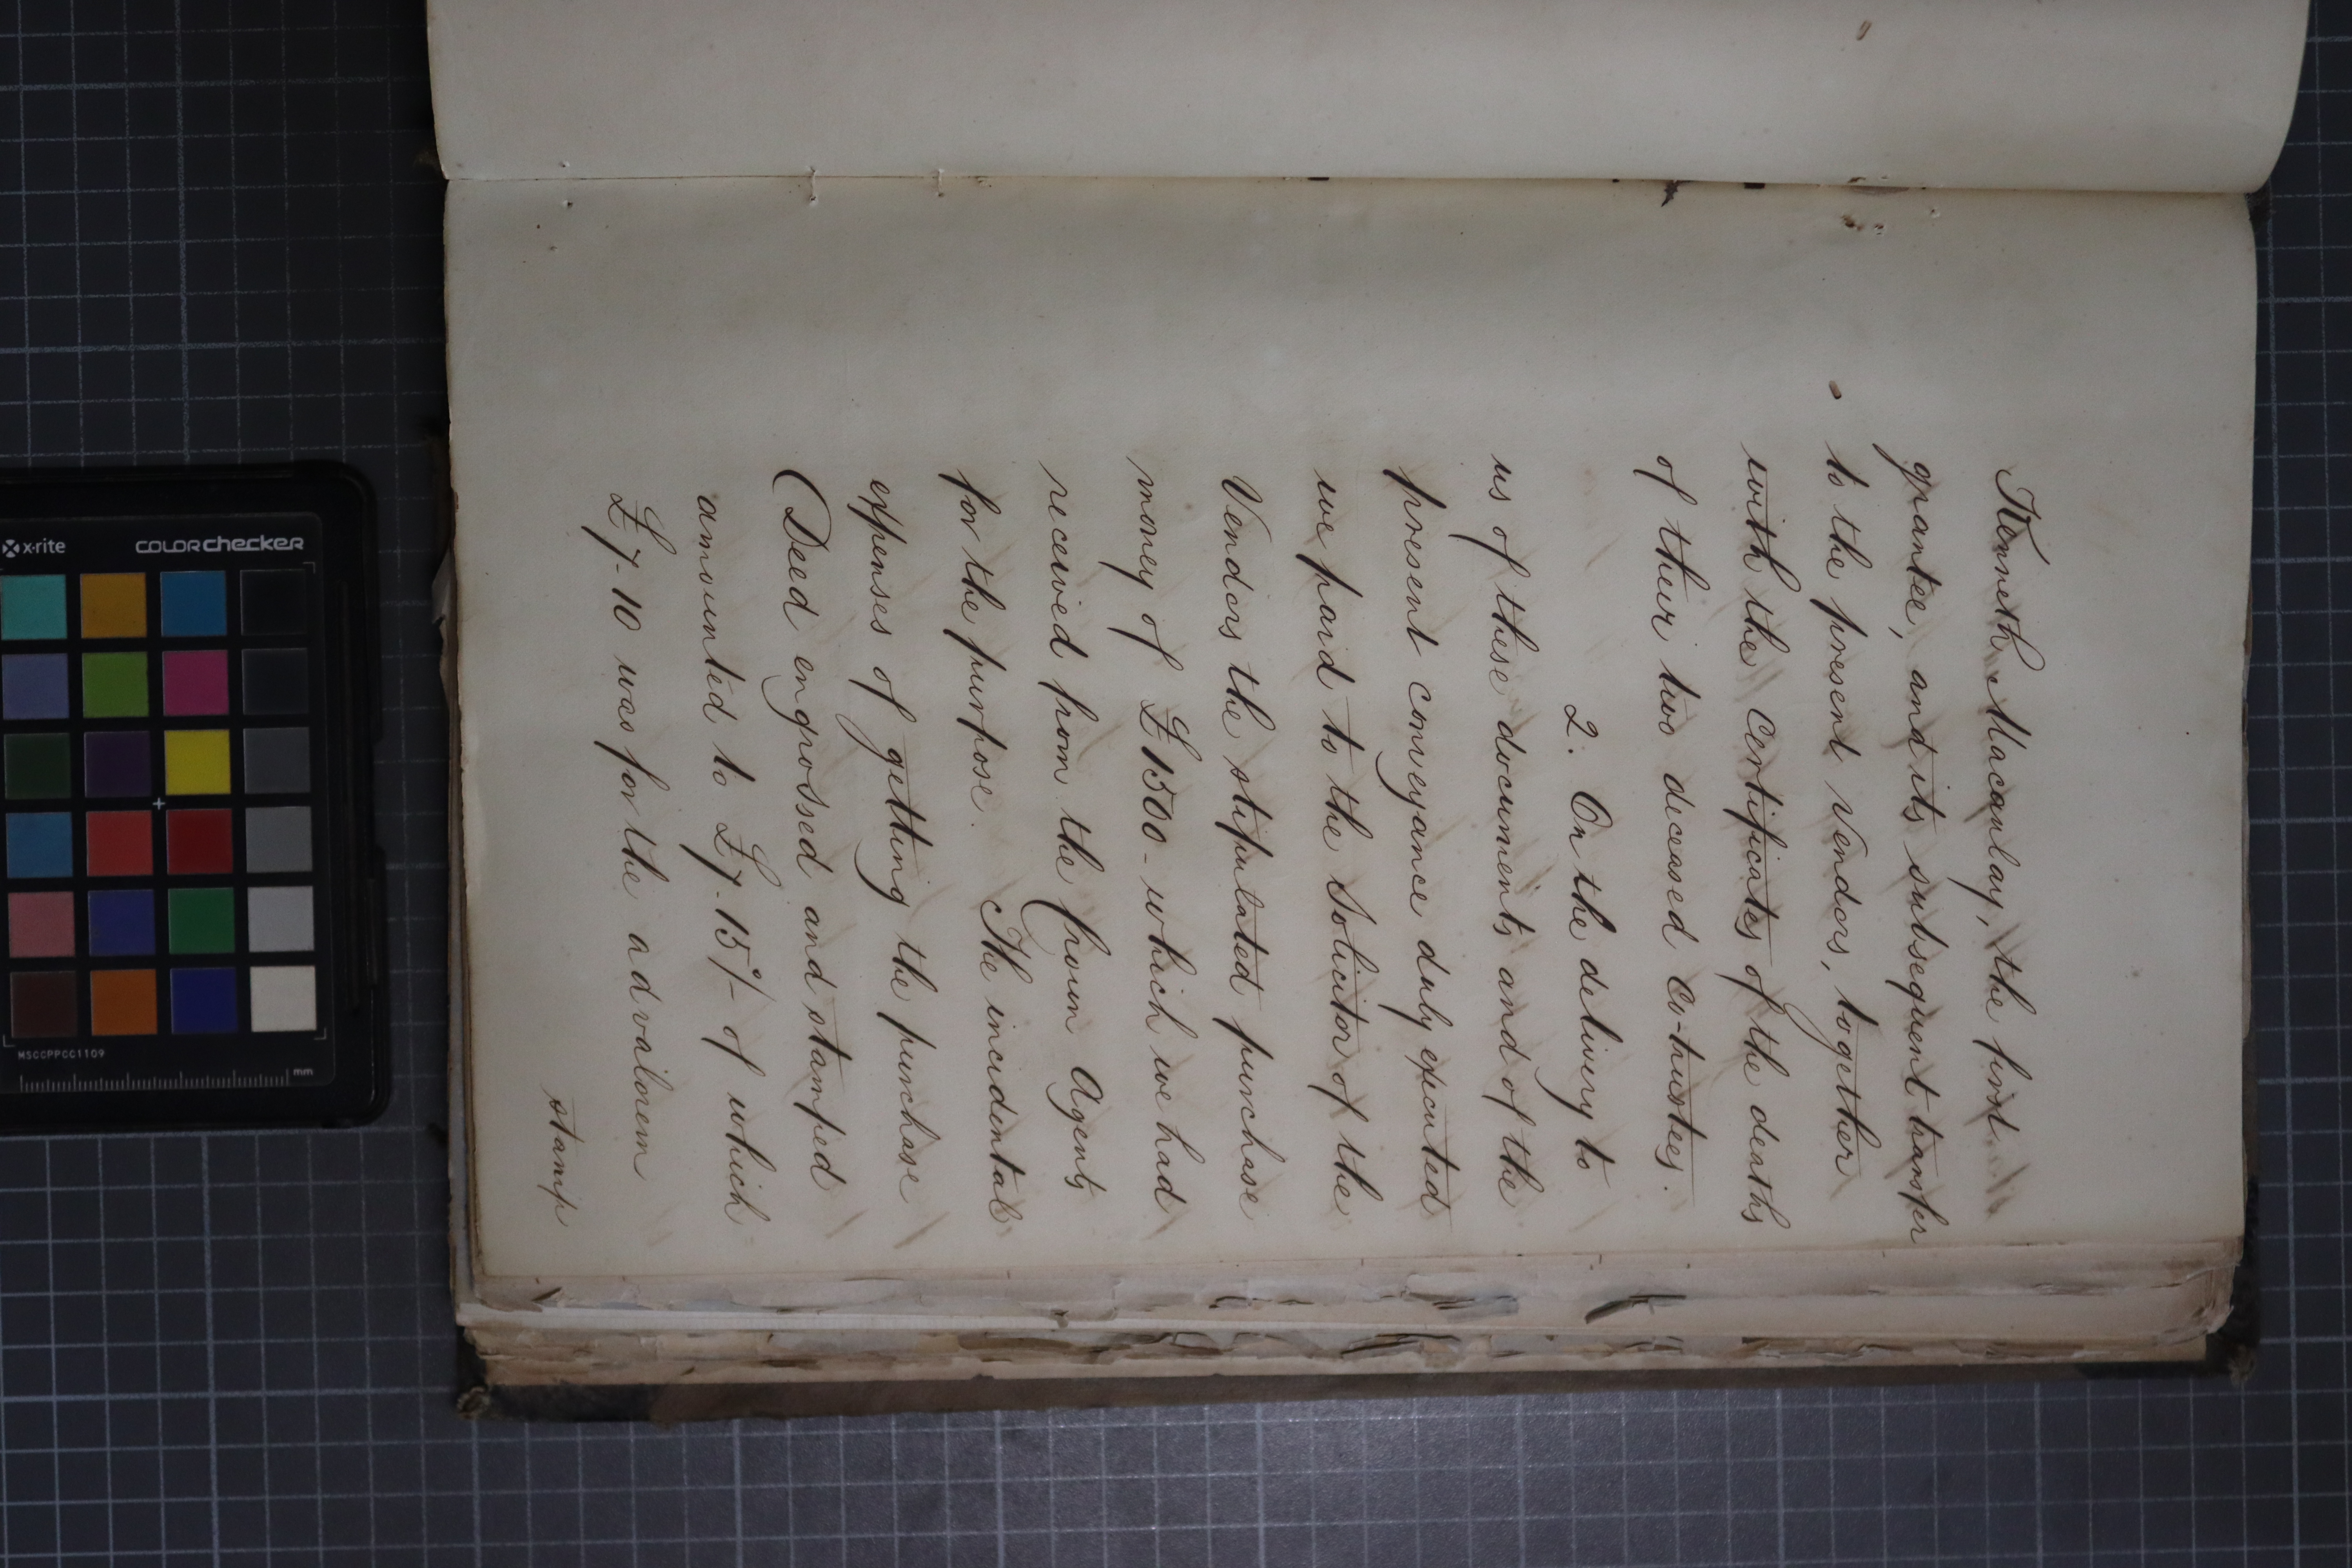 Kenneth Macaulay, the first
grantee, and its subsequent transfer
to the present Vendors, together
with the Certificates of the deaths
of their two deceased Co-trustees.
2. On the delivery to
us of these documents and of the
present conveyance duly executed
we paid to the Solicitor of the
Vendors the stipulated purchase
money of £1500 - which we had
received from the Crown Agents
for the purpose. The incidental
expenses of getting the purchase
Deed engrossed and stamped
amounted to £7.15/- of which
£7.10 was for the advalorem
stamp
x-rite
colorchecker
MSCCPPCC1109
mm